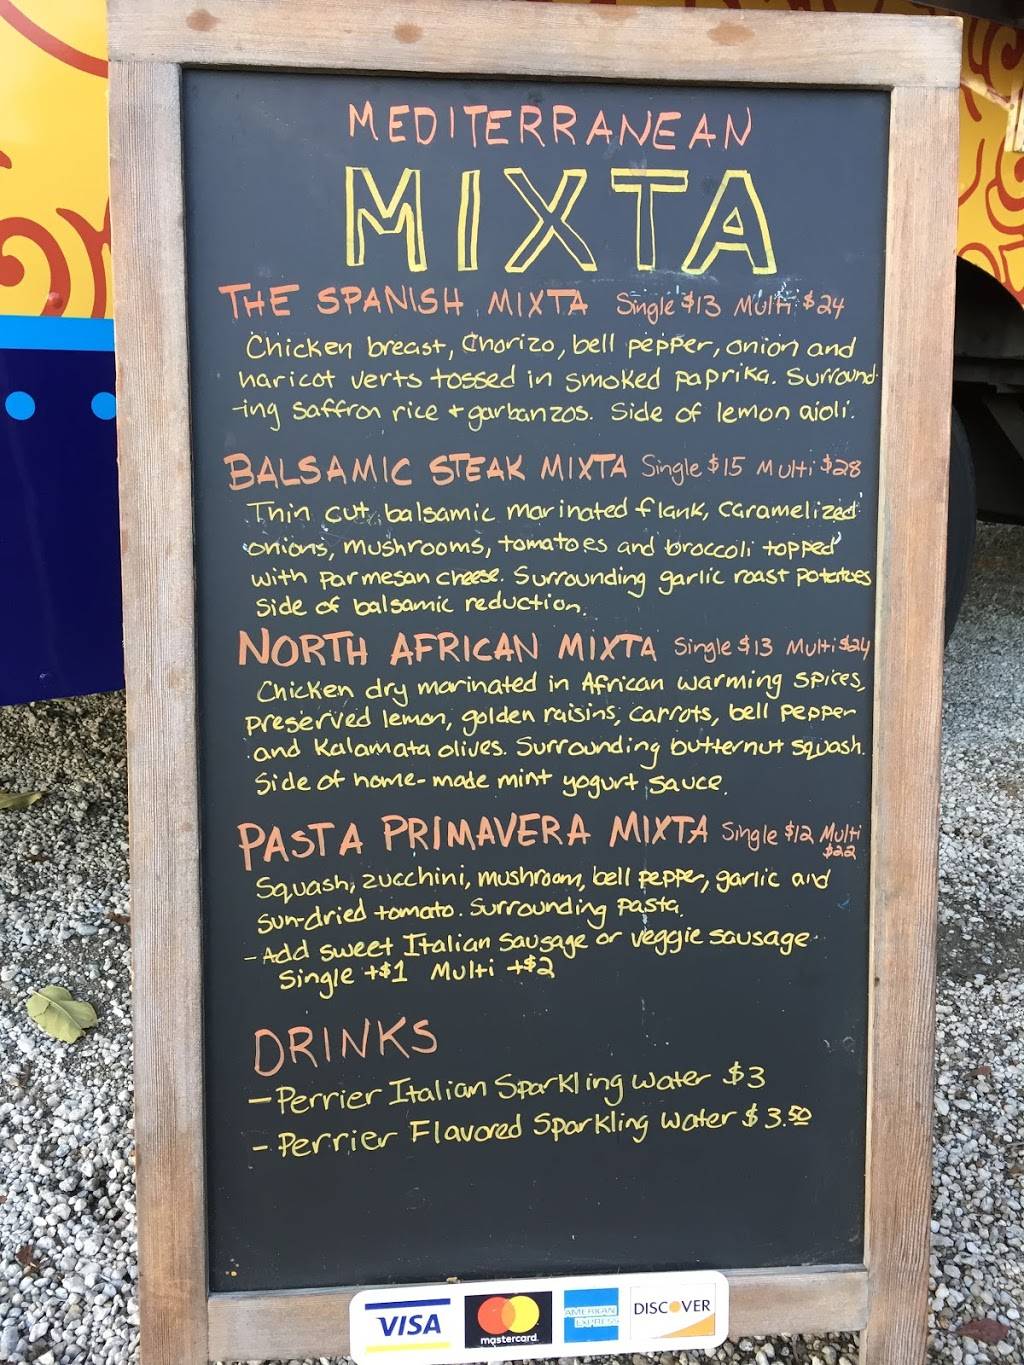 MEDITERRANEAN
MIXTA
THE SPANISH MIXTA Single $13 Multi $24
Chicken breast, Chorizo, bell pepper, onion and
haricot verts tossed in smoked paprika. Surround-
-ing saffron rice + garbanzos. Side of lemon aioli.
BALSAMIC STEAK MIXTA Single $15 Multi $28
Thin cut, balsamic marinated flank, caramelized
onions, mushrooms, tomatoes and broccoli topped
with parmesan cheese. Surrounding garlic roast potatoes
Side of balsamic reduction.
NORTH AFRICAN MIXTA Single $13 Multi $24
Chicken dry marinated in African warming spices,
preserved lemon, golden raisins, carrots, bell pepper
and Kalamata olives. Surrounding butternut squash.
Side of home-made mint yogurt sauce.
PASTA PRIMAVERA MIXTA Single $12 Multi
$22
Squash, zucchini, mushroom, bell pepper, garlic and
sun-dried tomato. Surrounding pasta.
- Add sweet Italian sausage or veggie sausage
Single +$1 Multi +$2
DRINKS
- Perrier Italian Sparkling water $3
- Perrier Flavored Sparkling Water $3.50
VISA mastercard. AMERICAN EXPRESS DISCOVER